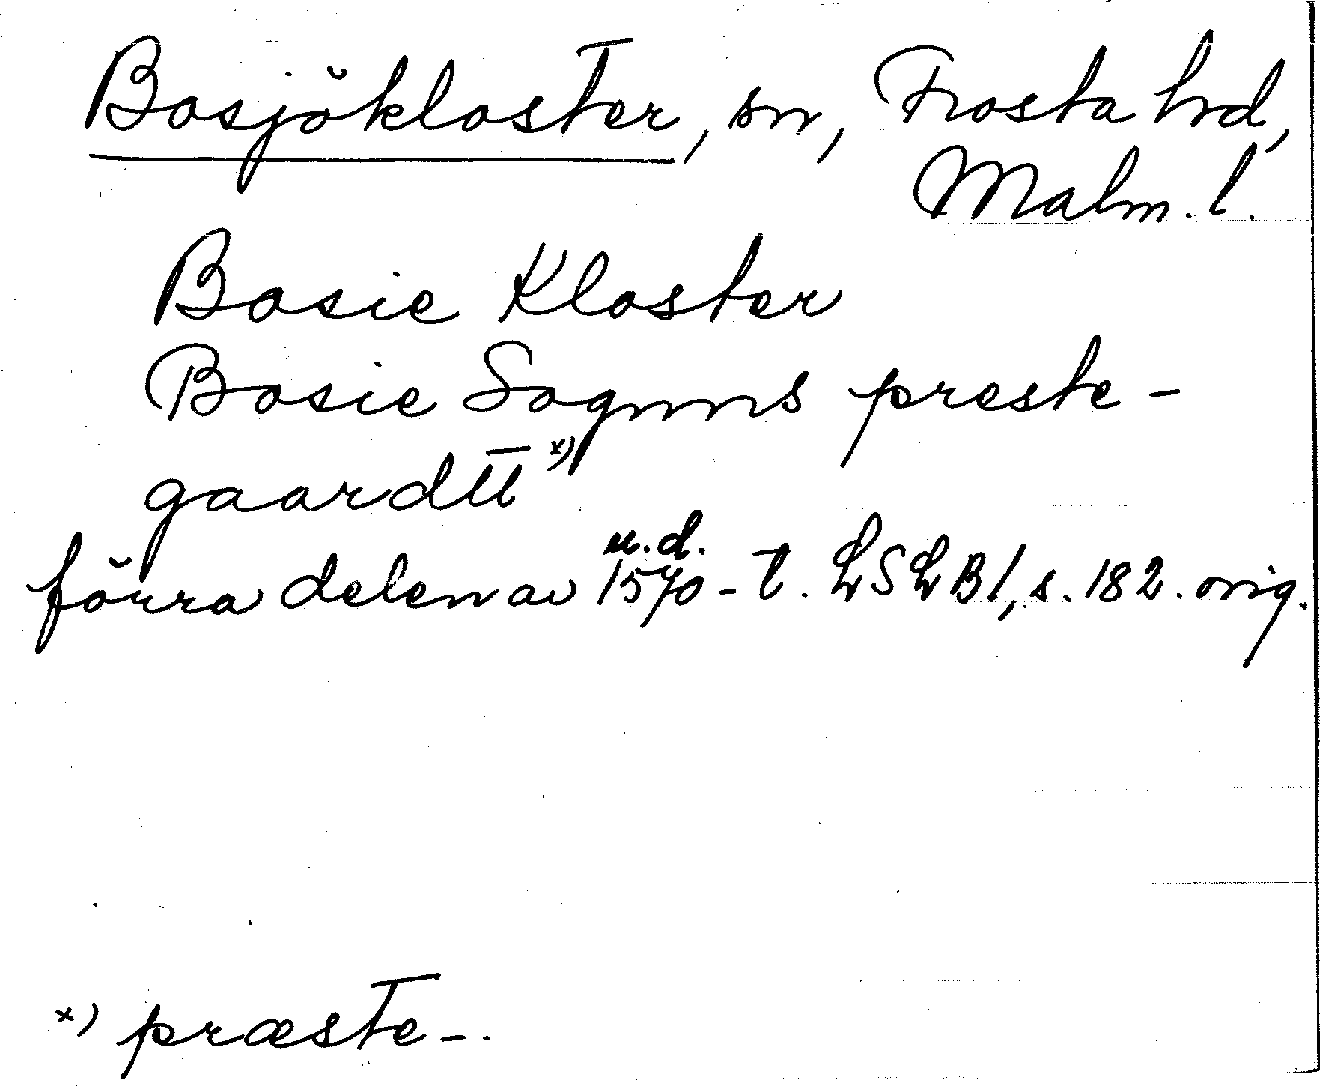 Bosjökloster, sn, Frosta hrd,
Malm. l.
Bosie Kloster
Bosie Sognns preste-
gaardtt x)
u.d.
förra delen av 1570-t. LSLB1, s. 182. orig.
x) præste-.